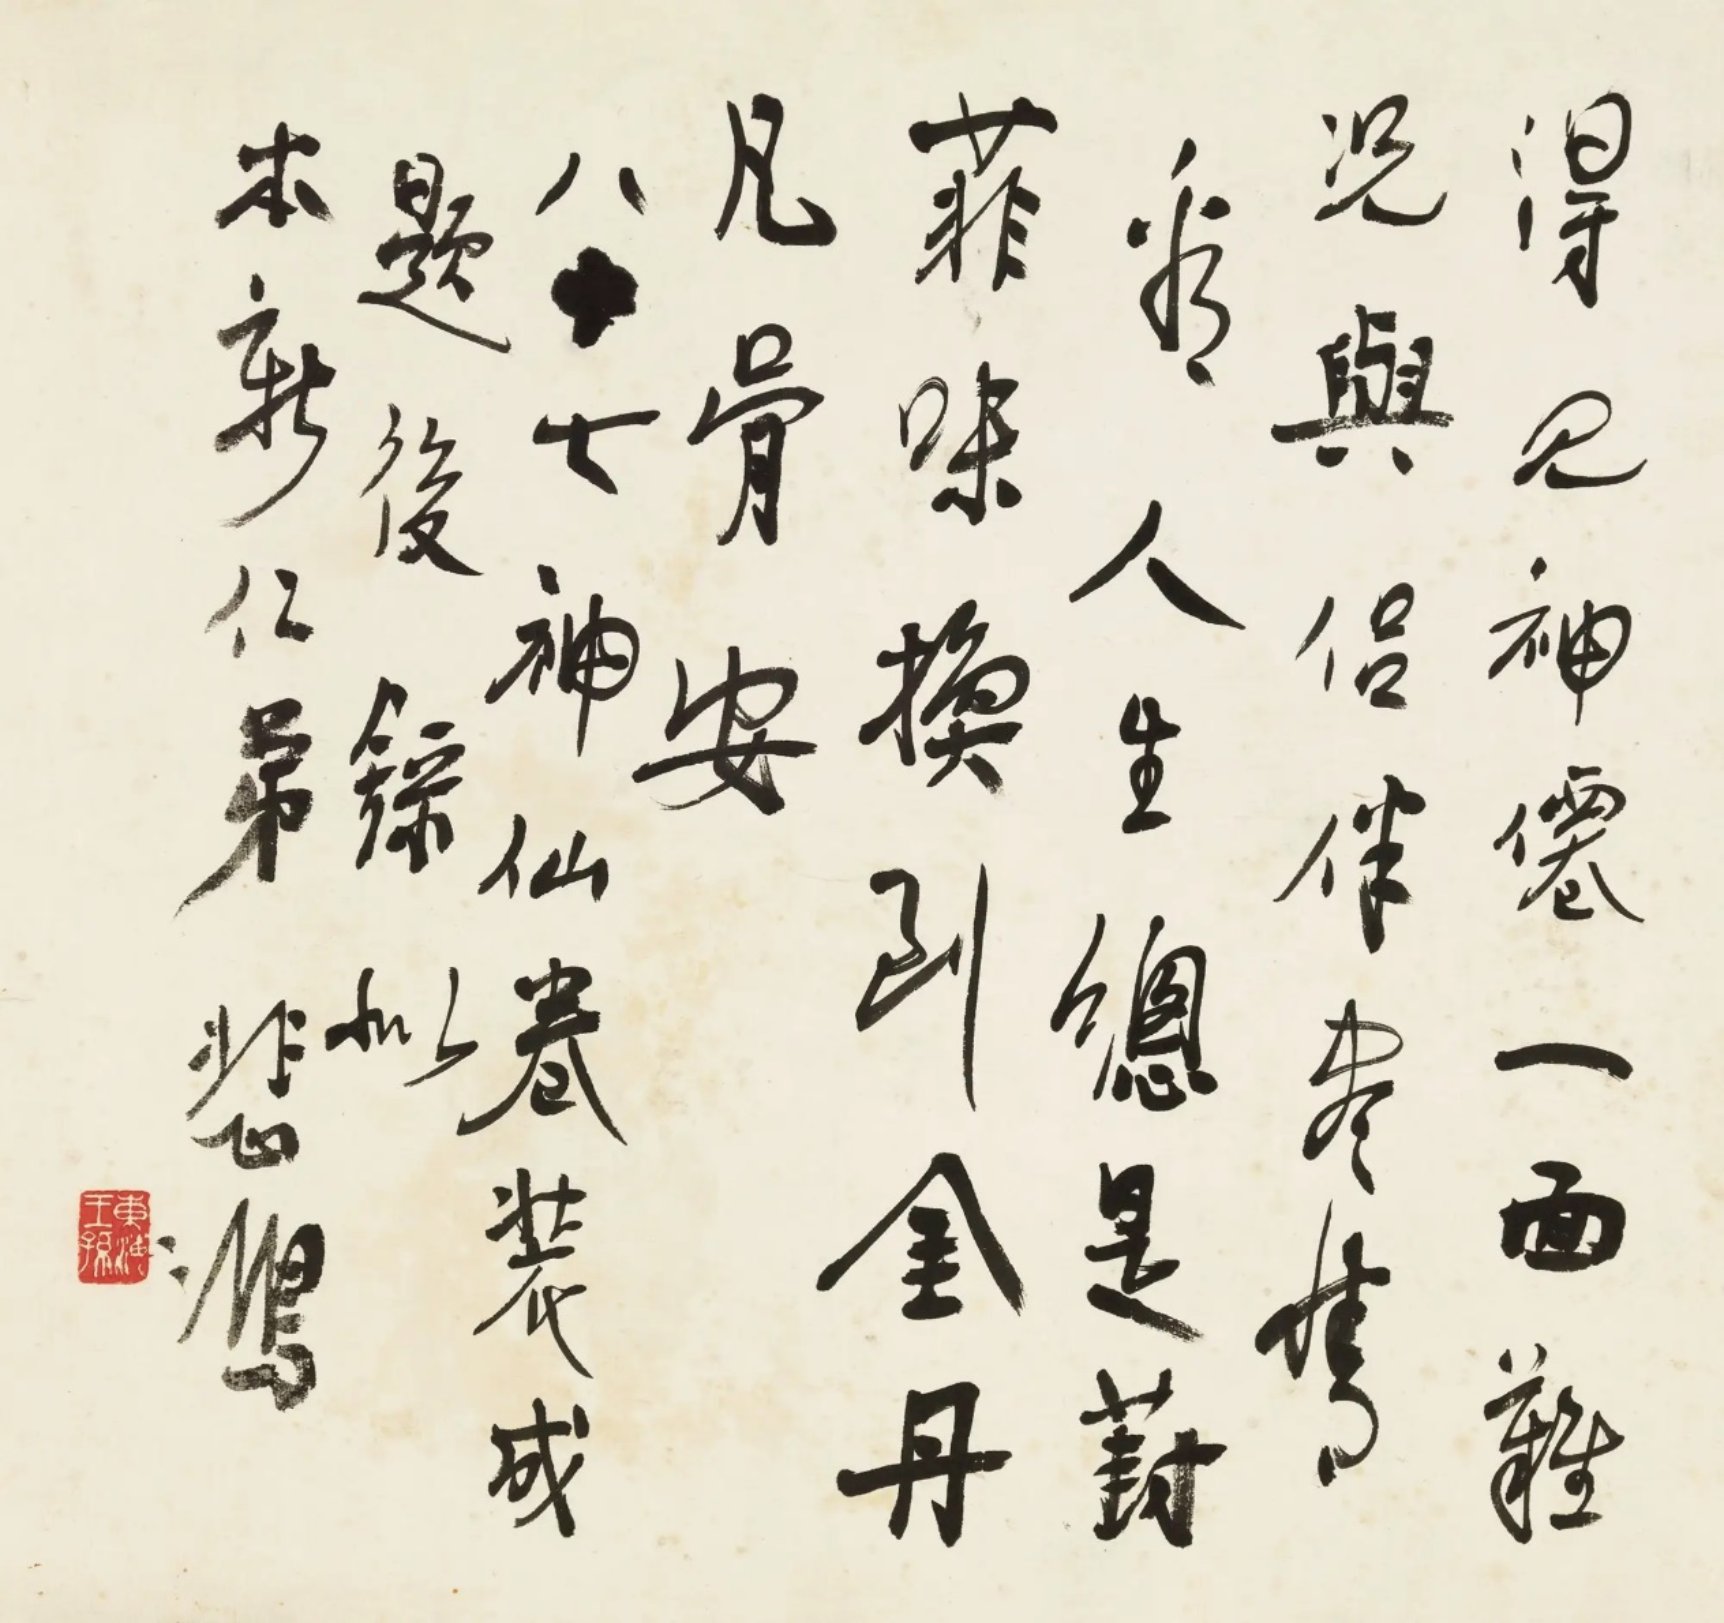 得見神僊一面難
況與侶伴盡情
看人生總是葑
菲味換到金丹
凡骨安
八十七神仙卷裝成
題後錄似
本新仁弟 悲鴻
東海王孫